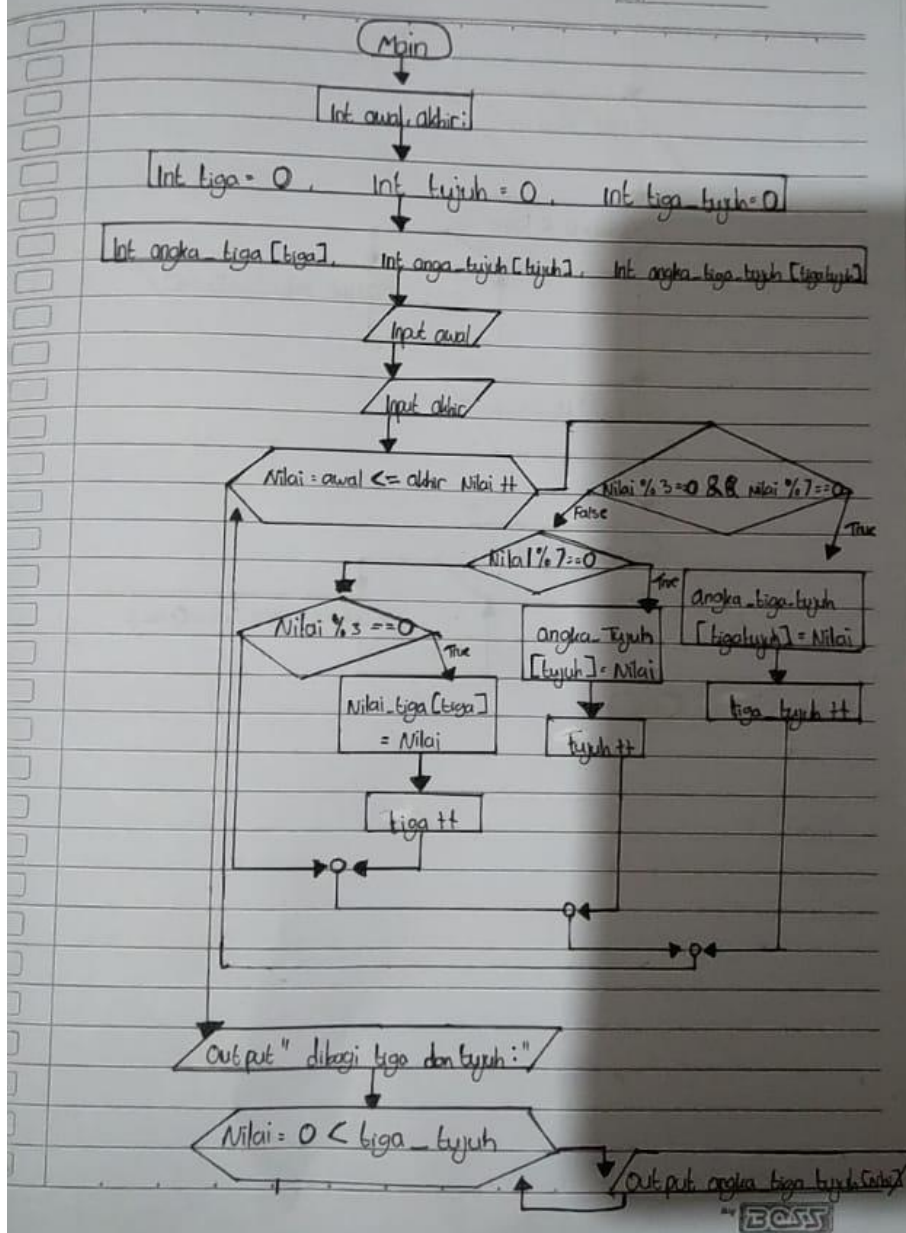 Main
Int awal, akhir;
Int tiga = 0, Int tujuh = 0, Int tiga_tujuh = 0
Int angka_tiga [tiga], Int anga_tujuh [tujuh], Int angka_tiga_tujuh [tigatujuh]
Input awal
Input akhir
Nilai = awal <= akhir Nilai ++
Nilai % 3 == 0 && Nilai % 7 == 0
False
True
Nilai % 7 == 0
True
Nilai % 3 == 0
True
angka_tiga_tujuh
[tigatujuh] = Nilai
angka_Tujuh
[tujuh] = Nilai
Nilai_tiga [tiga]
= Nilai
tiga_tujuh ++
tujuh ++
tiga ++
Output " dibagi tiga dan tujuh :"
Nilai = 0 < tiga_tujuh
Output angka tiga tujuh
BOSS